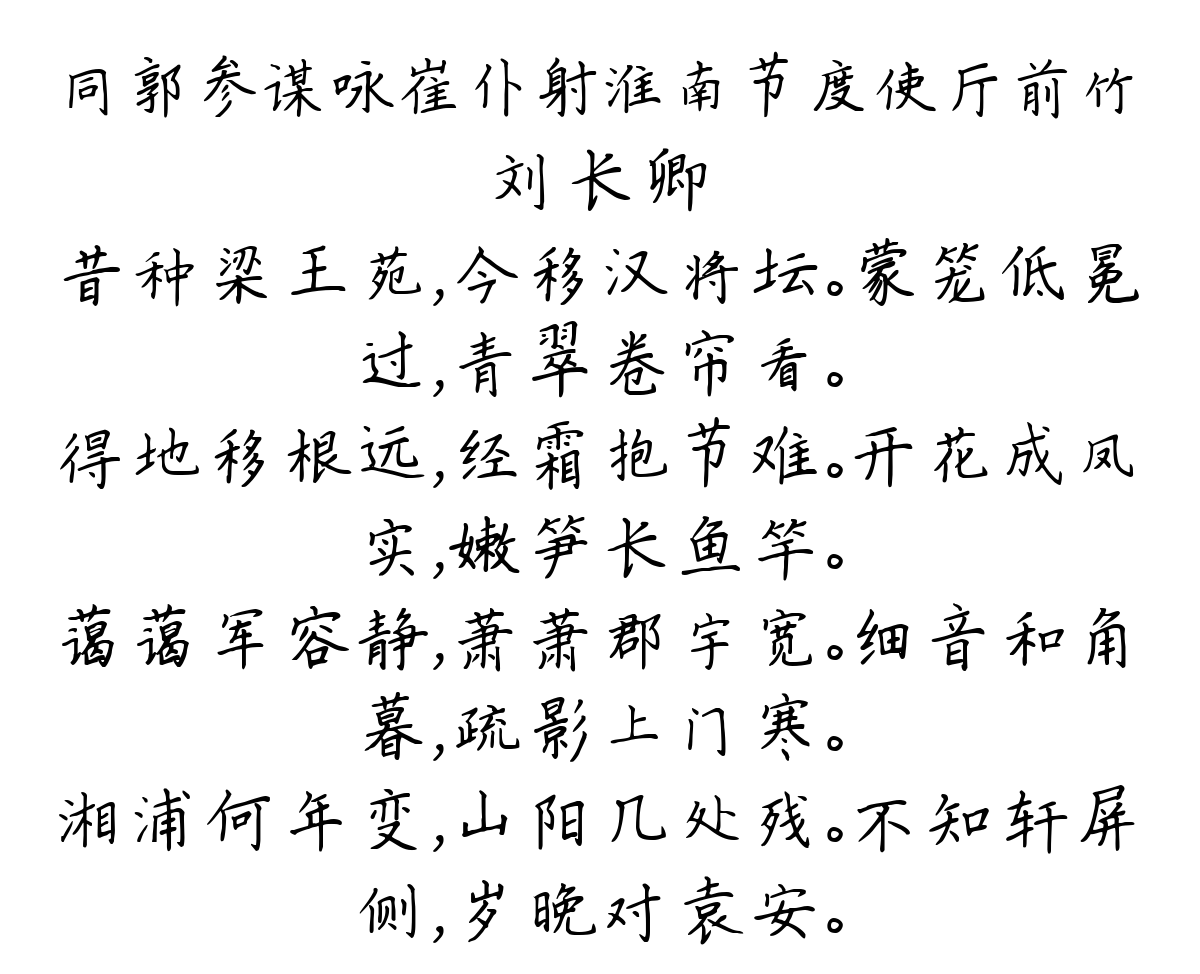 同郭参谋咏崔仆射淮南节度使厅前竹
刘长卿
昔种梁王苑,今移汉将坛。蒙笼低冕
过,青翠卷帘看。
得地移根远,经霜抱节难。开花成凤
实,嫩笋长鱼竿。
蔼蔼军容静,萧萧郡宇宽。细音和角
暮,疏影上门寒。
湘浦何年变,山阳几处残。不知轩屏
侧,岁晚对袁安。